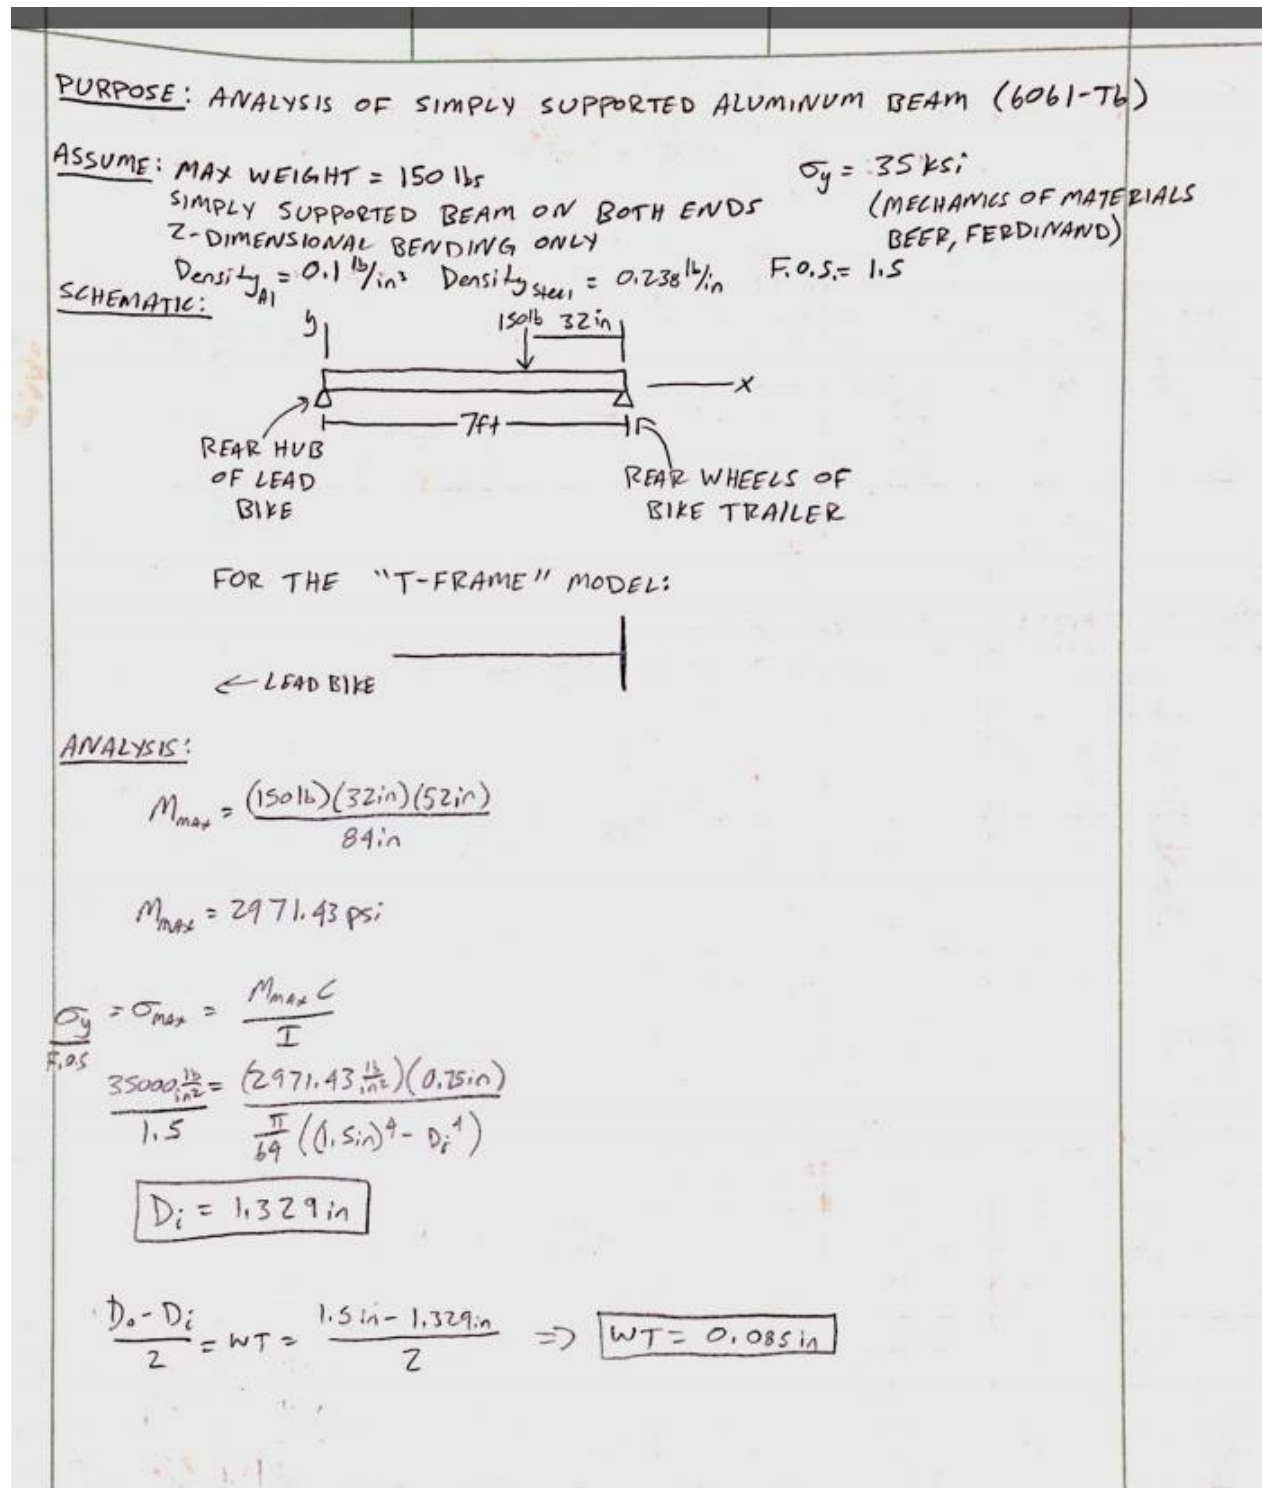 PURPOSE: ANALYSIS OF SIMPLY SUPPORTED ALUMINUM BEAM (6061-T6)
ASSUME: MAX WEIGHT = 150 lbs σy = 35 ksi
SIMPLY SUPPORTED BEAM ON BOTH ENDS (MECHANICS OF MATERIALS
2-DIMENSIONAL BENDING ONLY BEER, FERDINAND)
Density Al = 0.1 lb/in³ Density steel = 0.238 lb/in F.O.S. = 1.5
SCHEMATIC:
y 150lb 32in
x
7ft
REAR HUB OF LEAD BIKE
REAR WHEELS OF BIKE TRAILER
FOR THE "T-FRAME" MODEL:
← LEAD BIKE
ANALYSIS:
Mmax = (150lb)(32in)(52in) / 84in
Mmax = 2971.43 psi
σy / F.O.S = σmax = Mmax C / I
35000 lb/in² / 1.5 = (2971.43 lb/in²)(0.75in) / π/64 ((1.5in)⁴ - Di⁴)
Di = 1.329in
Do - Di / 2 = WT = 1.5in - 1.329in / 2 ⇒ WT = 0.085in